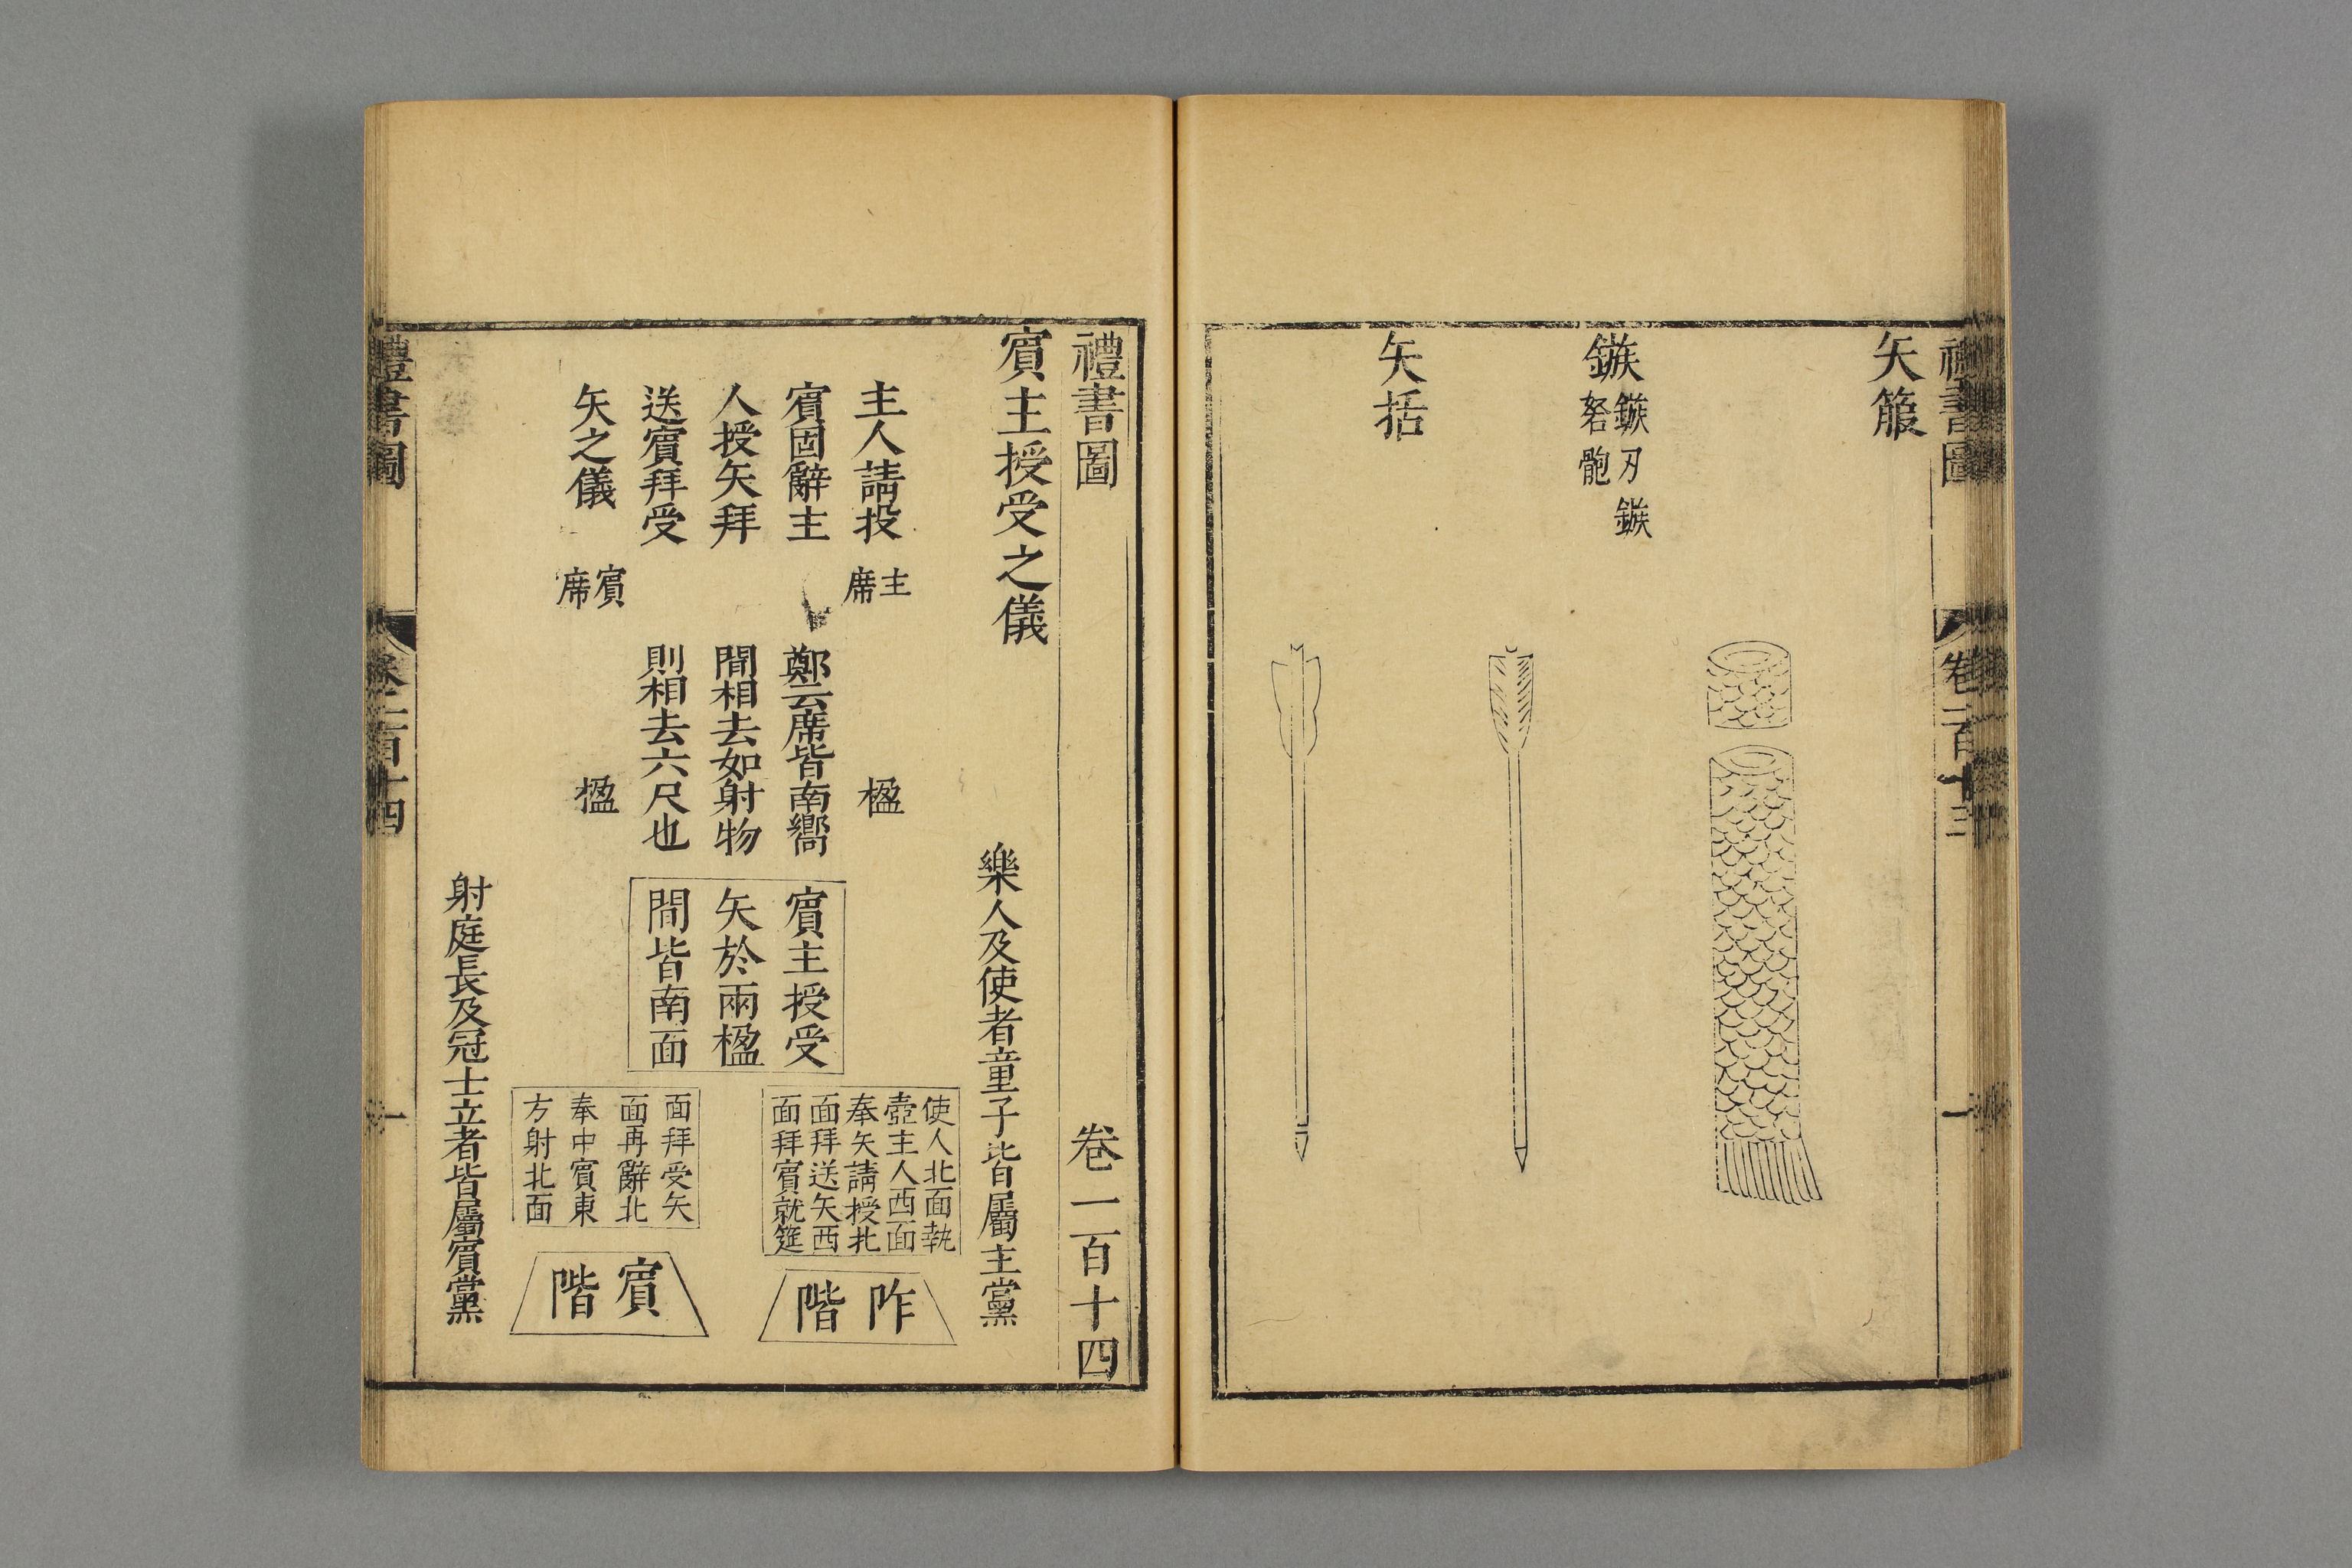 禮書圖 卷一百十三 一
矢箙
鏃 鏃刃鏃
砮骲
矢括
禮書圖 卷一百十四
賔主授受之儀
樂人及使者童子皆屬主黨
主人請投
賔固辭主
人授矢拜
送賔拜受
矢之儀
主席
賔席
鄭云席皆南嚮
間相去如射物
則相去六尺也
楹
楹
賔主授受
矢於兩楹
間皆南面
使人北面執
壺主人西面
奉矢請授北
面拜送矢西
面拜賔就筵
面拜受矢
面再辭北
奉中賔東
方射北面
阼階
賔階
射庭長及冠士立者皆屬賔黨
禮書圖 卷一百十四 一